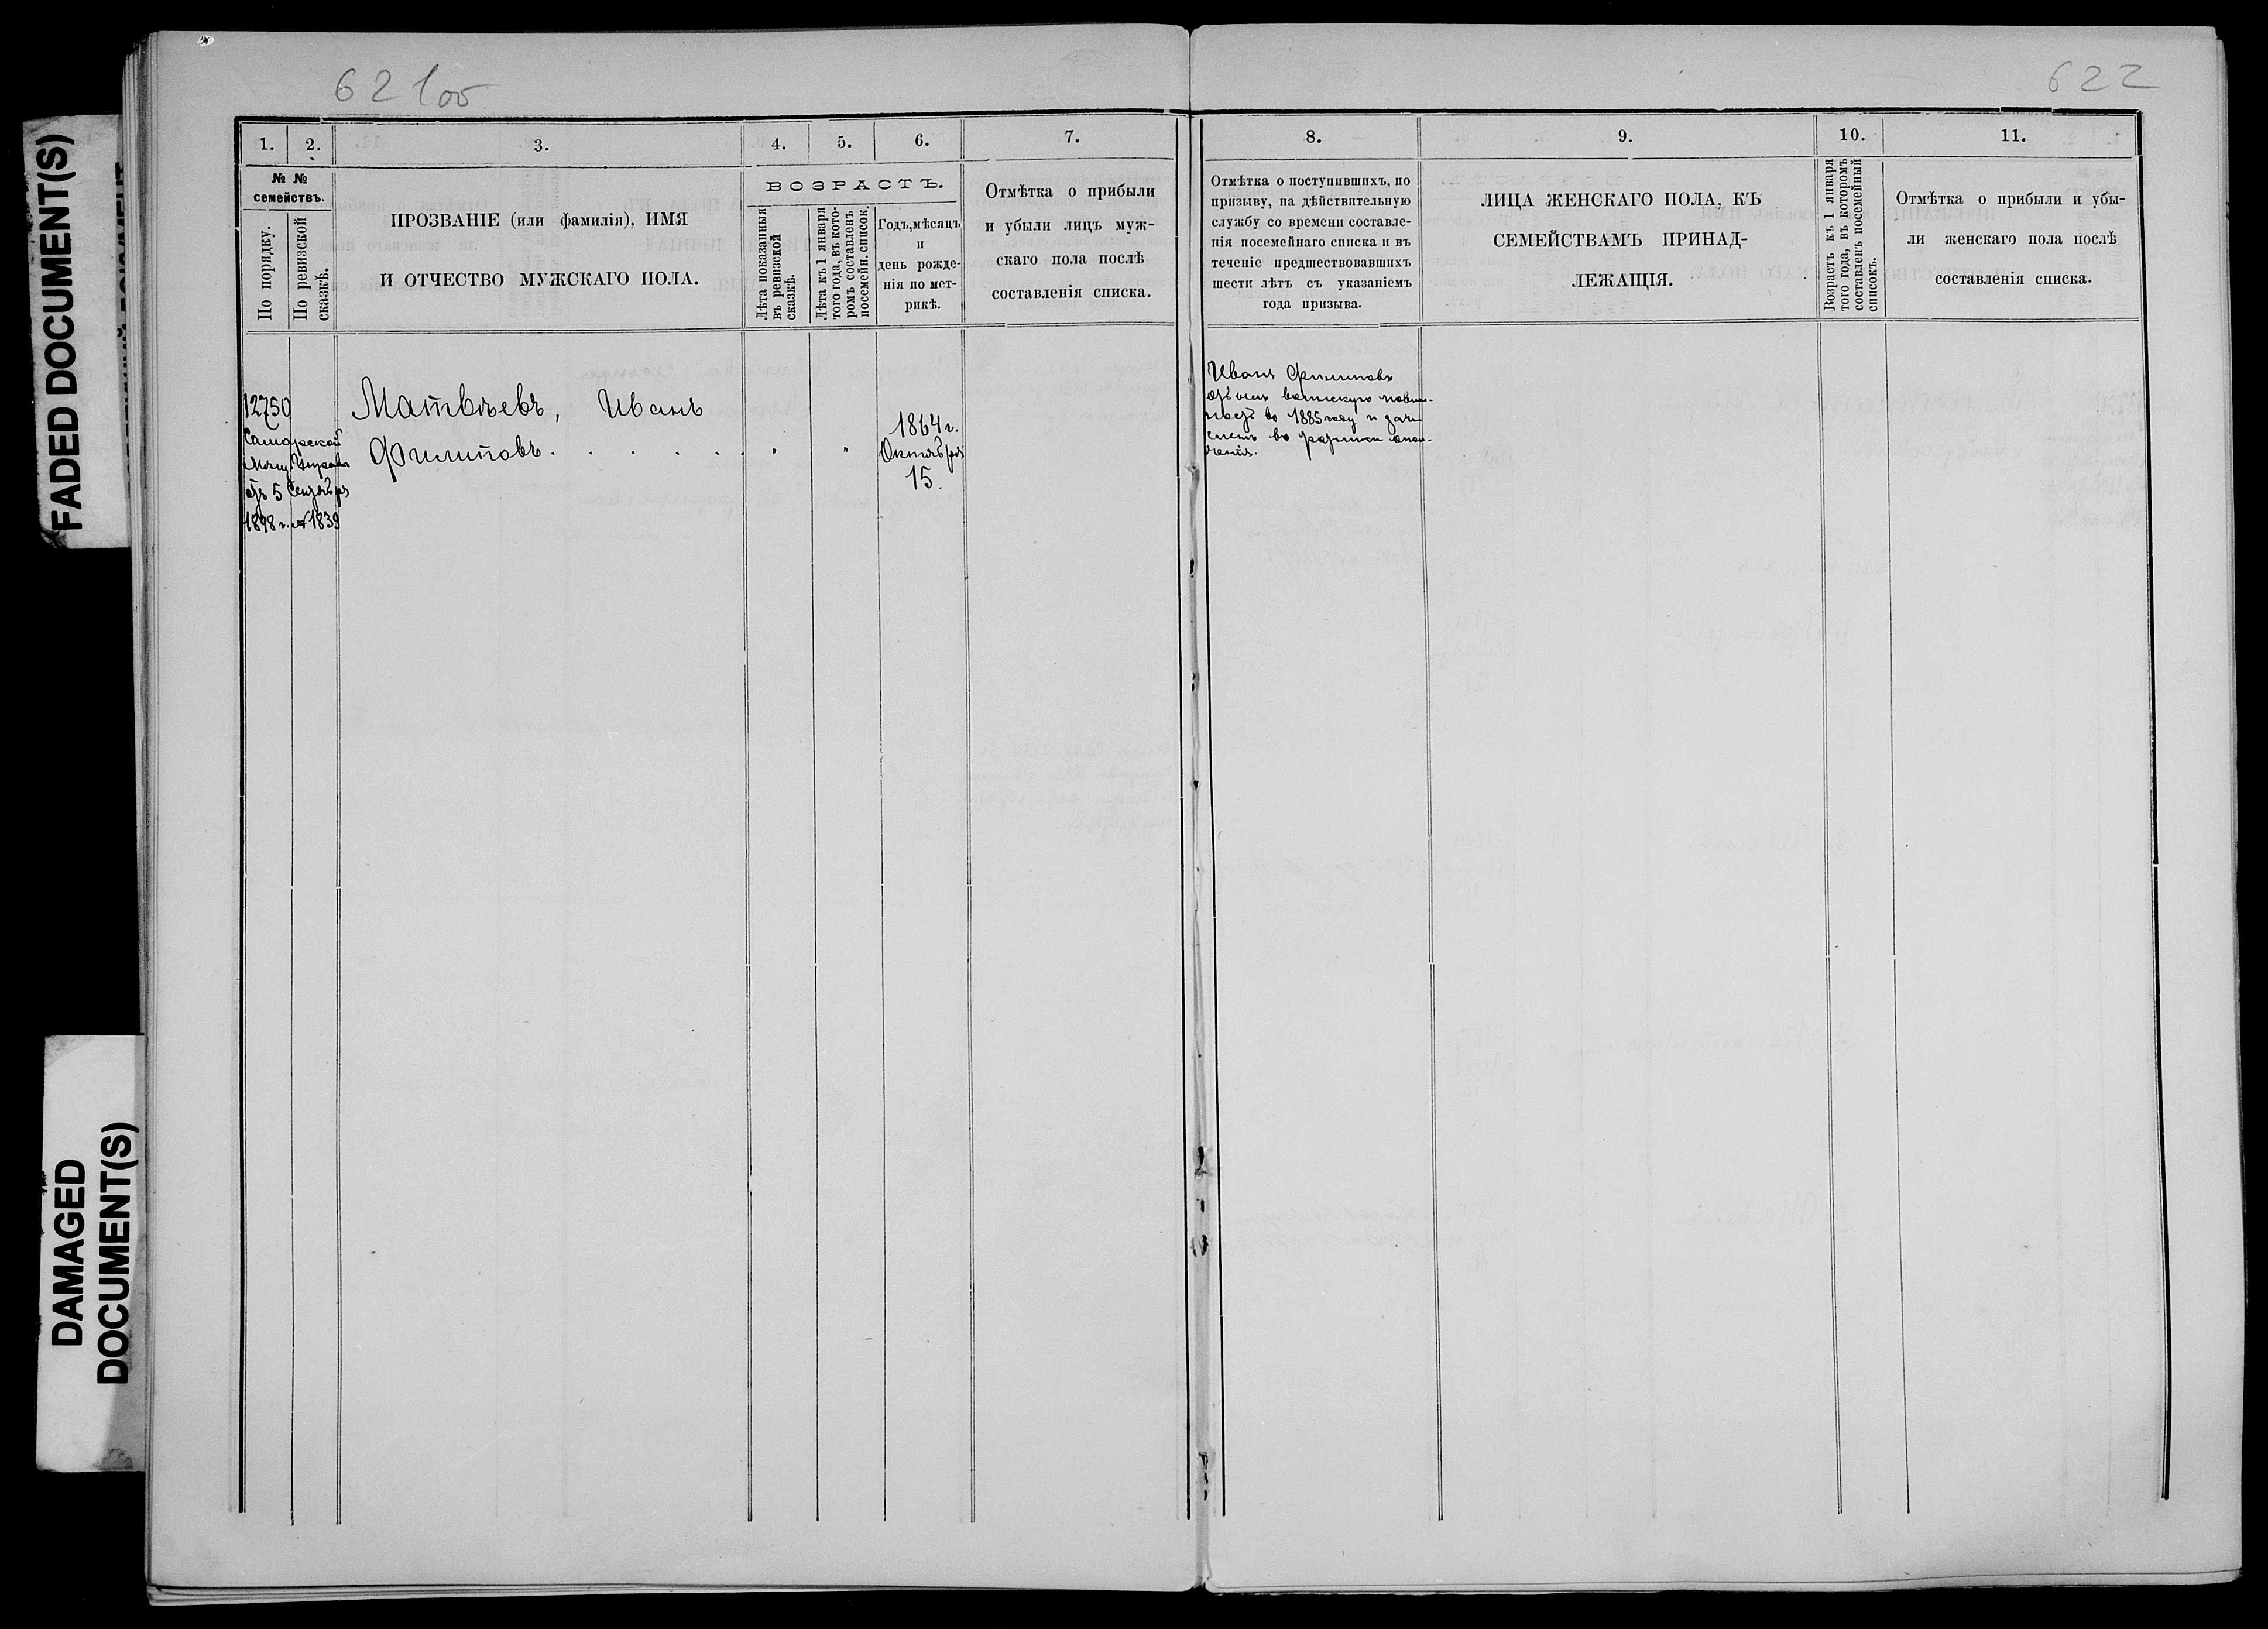 FADED DOCUMENT(S)
DAMAGED
DOCUMENT(S)
621об
622
1.
2.
3.
4.
5.
6.
7.
№ №
семействъ.
По порядку.
По ревизской
сказкѣ.
ПРОЗВАНІЕ (или фамилія), ИМЯ
И ОТЧЕСТВО МУЖСКАГО ПОЛА.
ВОЗРАСТЪ.
Лѣта показанныя
въ ревизской
сказкѣ.
Лѣта къ 1 января
того года, въ кото-
ромъ составленъ
посемейн. список.
Годъ, мѣсяцъ
и
день рожде-
нія по мет-
рикѣ.
Отмѣтка о прибыли
и убыли лицъ муж-
скаго пола послѣ
составленія списка.
12750
Самарской
Мѣщ. Управы
отъ 5 Сентября
1898 г. № 1839
Матвѣевъ, Иванъ
Филиповъ . . . . .
1864 г.
Октября
15.
8.
9.
10.
11.
Отмѣтка о поступившихъ, по
призыву, на дѣйствительную
службу со времени составле-
нія посемейнаго списка и въ
теченіе предшествовавшихъ
шести лѣтъ съ указаніемъ
года призыва.
ЛИЦА ЖЕНСКАГО ПОЛА, КЪ
СЕМЕЙСТВАМЪ ПРИНАД-
ЛЕЖАЩІЯ.
Возрастъ къ 1 января
того года, въ которомъ
составленъ посемейный
списокъ.
Отмѣтка о прибыли и убы-
ли женскаго пола послѣ
составленія списка.
Иванъ Филиповъ
отб. воинскую повин-
ность въ 1885 году и зачи-
сленъ въ ратники опол-
ченія.